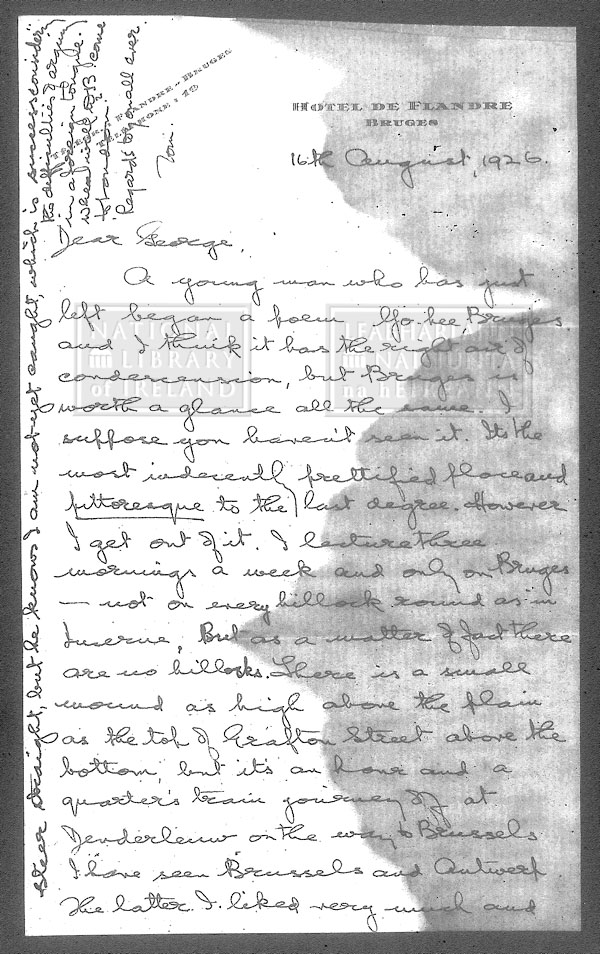 HOTEL DE FLANDRE
BRUGES
TELEGR. FLANDRE - BRUGES
TELEPHONE: 29
16th August, 1926.
Dear George,
A young man who has just
left began a poem "Yo hee, Bruges
and I think it has the right air of
condescension, but Bruges is
worth a glance all the same. I
suppose you haven't seen it. Its the
most indecently prettified place and
pittoresque to the last degree. However
I get out of it. I lecture three
mornings a week and only on Bruges
— not on every hillock round as in
Lucerne, But as a matter of fact there
are no hillocks. There is a small
mound as high above the plain
as the top of Grafton Street above the
bottom, but it's an hour and a
quarter's train journey off at
Denderleuw on the way to Brussels
I have seen Brussels and Antwerp
The latter I liked very much and
steer straight, but he knows I am not yet caught, which is success considering
the difficulties of arguing
in a foreign tongue.
When will B. come
to London?
Regards to you all ever
Tom.
NATIONAL
LIBRARY
of IRELAND
LEABHARLANN
NÁISIÚNTA
na hÉIREANN